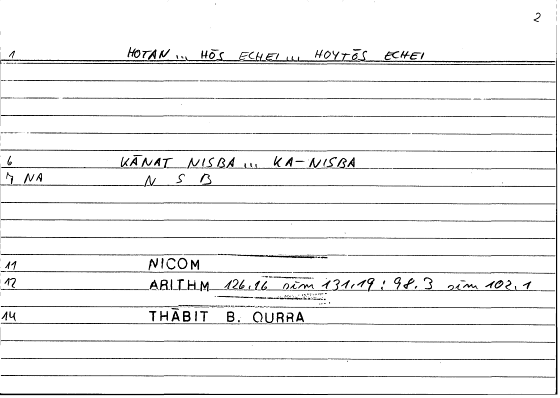 2
1 HOTAN... HŌS ECHEI... HOYTŌS ECHEI
6 KĀNAT NISBA... KA-NISBA
7 NA N S B
11 NICOM
12 ARITHM 126,16 sim 131,19 : 98.3 sim 102.1
14 THĀBIT B. QURRA